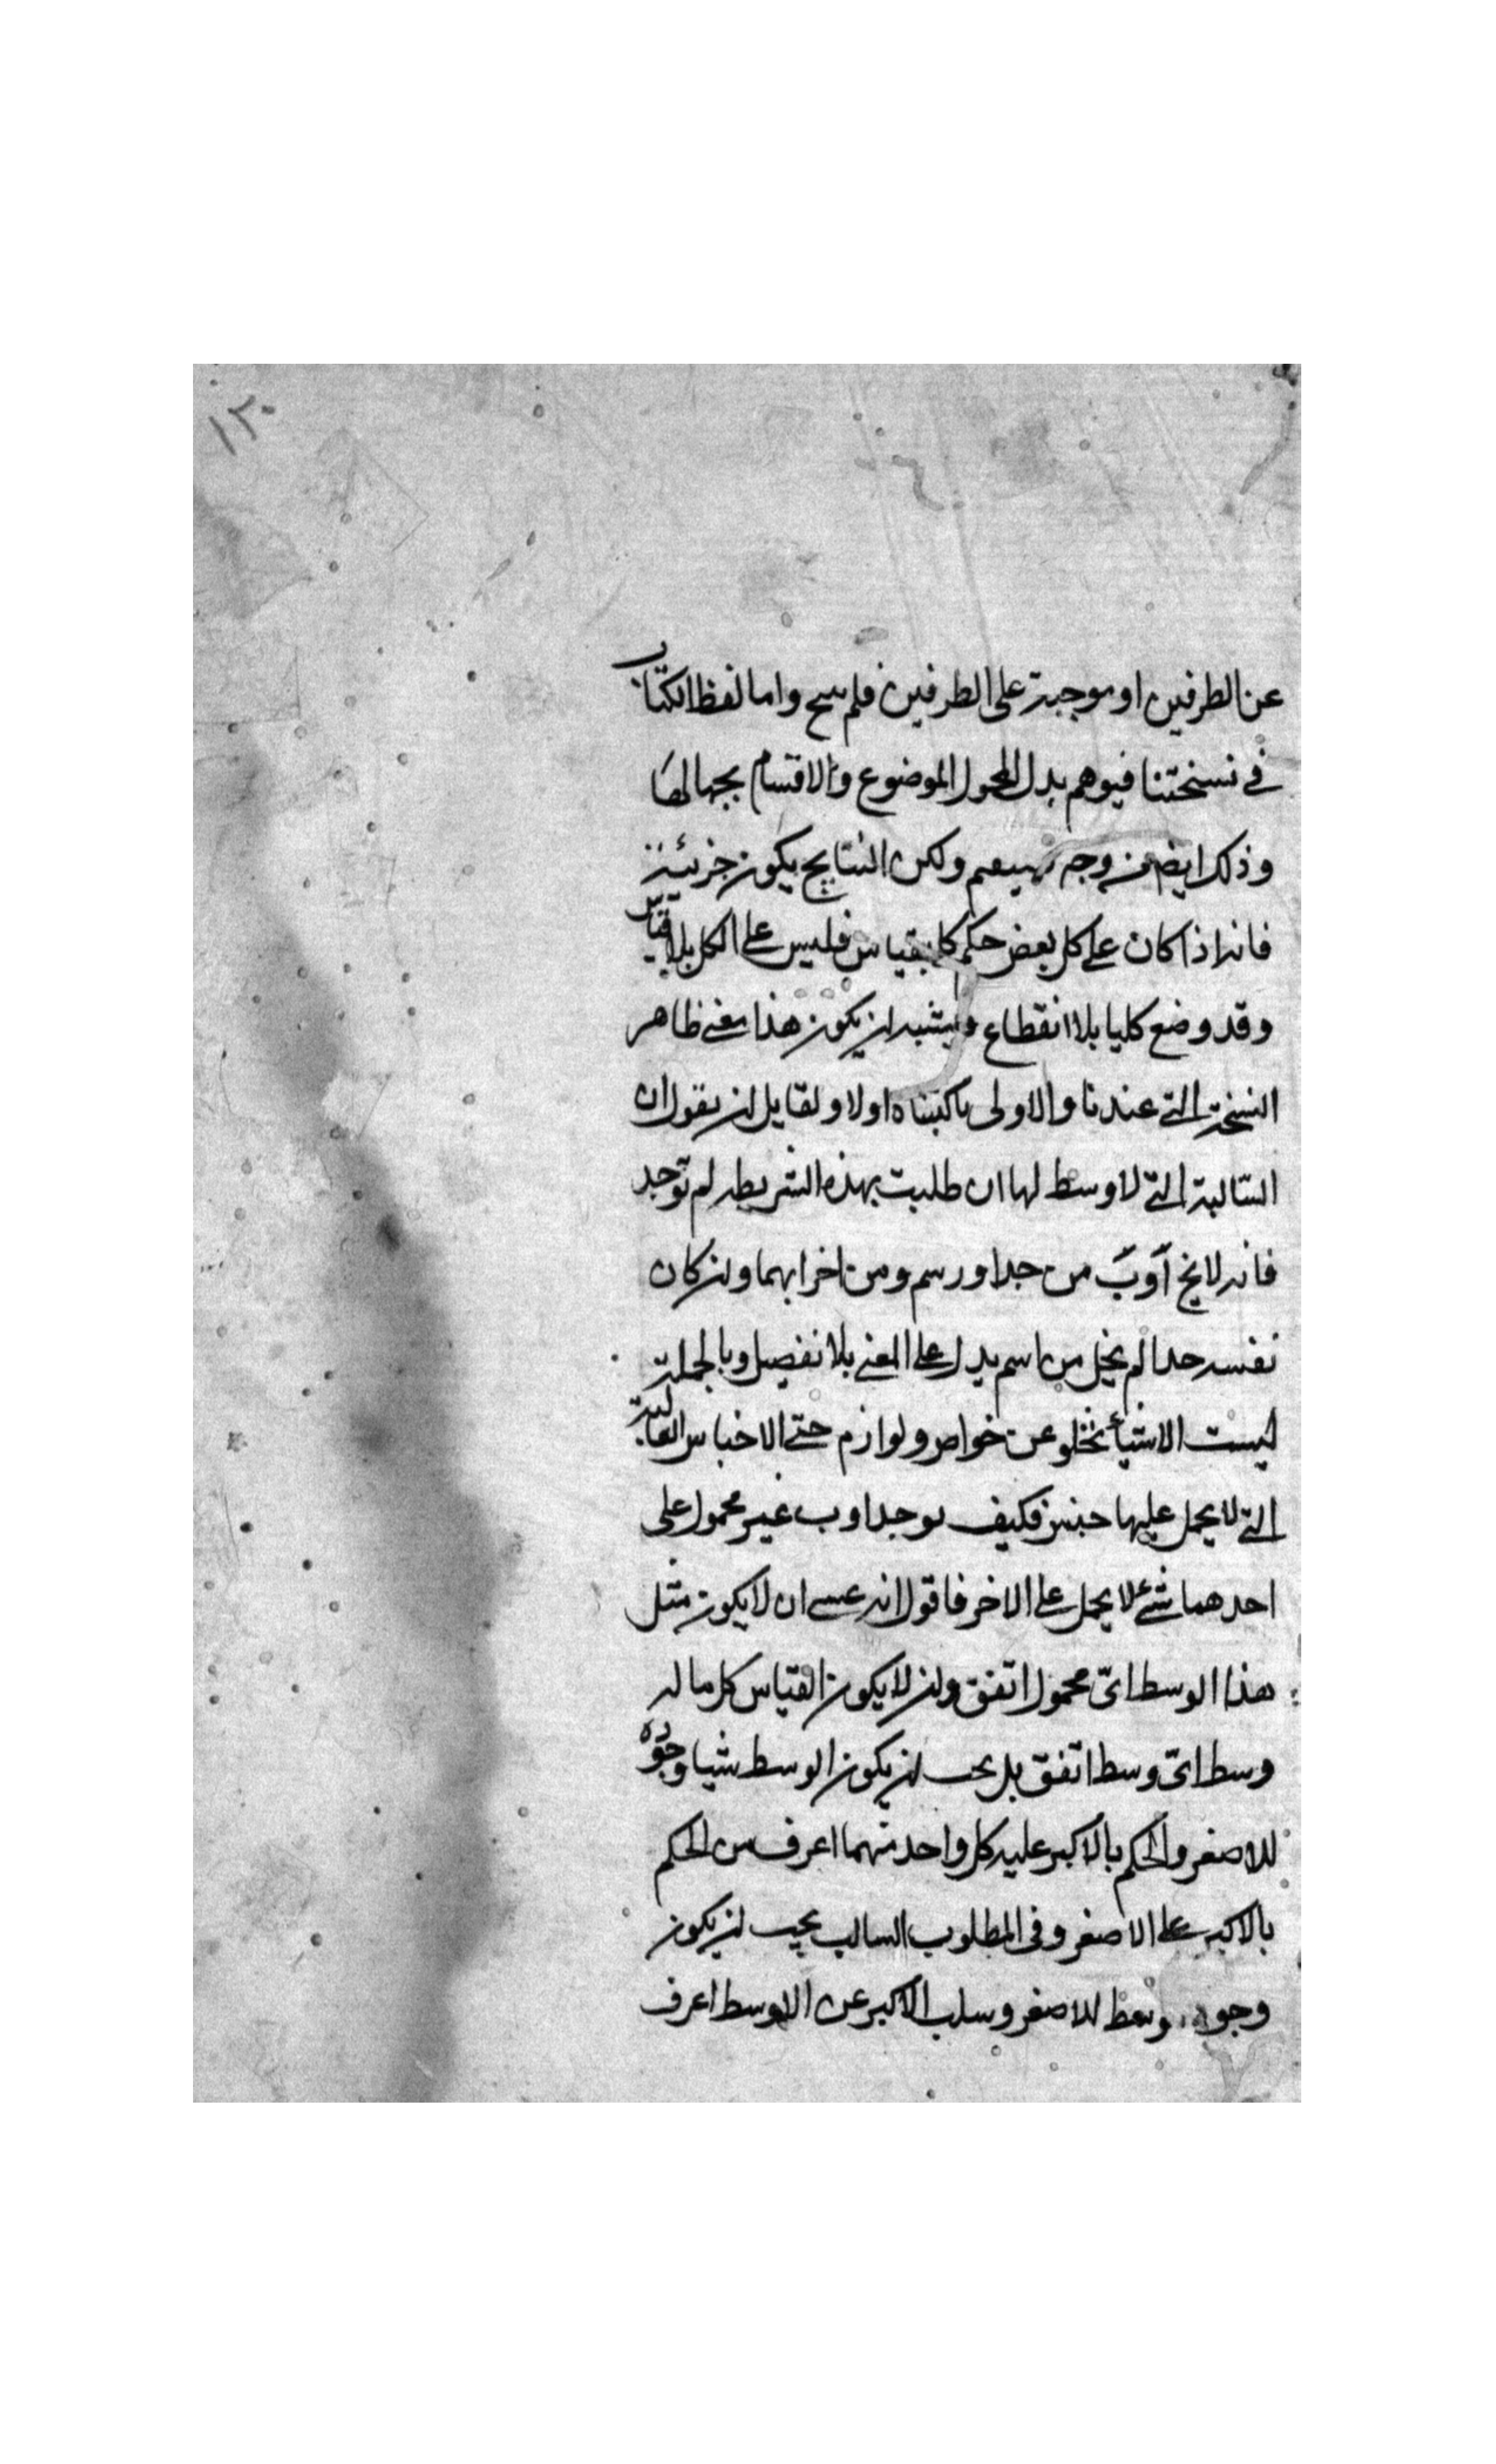 ١٢٠
عن الطرفين او موجبة على الطرفين فلم ينتج واما لفظ الكتاب
في نسختنا فيوهم بدل المحمول الموضوع والاقسام بجهالها
وذلك ايضا من وجه ولكن النتايج يكون جزئية
فانه اذا كان على كل بعض حكم كان بقياس فليس على الكل بلا قياس
وقد وضع كليا بلا انقطاع ويشبه ان يكون هذا معنى ظاهر
النسخة التي عندنا والاولى ما كتبناه اولا ولقايل ان يقول ان
السالبة التي لا وسط لها ان طلبت بهذه الشريطه لم توجد
فانه لا يخ آ وب من حد او رسم ومن اخرابهما وان كان
نفسه حدا لم يخل من اسم يدل على المعنى بلا تفصيل وبالجملة
ليست الاشياء تخلو عن خواص ولوازم حتى الاجناس العالية
التي لا يحمل عليها جنس فكيف يوجد ا وب غير محمول على
احدهما شئ لا يحمل على الاخر فاقول انه عسى ان لا يكون مثل
هذا الوسط اىّ محمول اتفق وان لا يكون القياس كل ما له
وسط اىّ وسط اتفق بل يجب ان يكون الوسط شيا وجوده
للاصغر والحكم بالاكبر عليه كل واحد منهما اعرف من الحكم
بالاكبر على الاصغر وفى المطلوب السالب يجب ان يكون
وجود وسط للاصغر وسلب الاكبر عن الاوسط اعرف